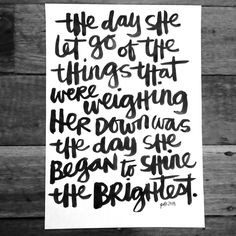 the day she
let go of the
things that
were weighing
HER DOWN was
the day she
BEGAN to SHINE
the BRIGHTEST.